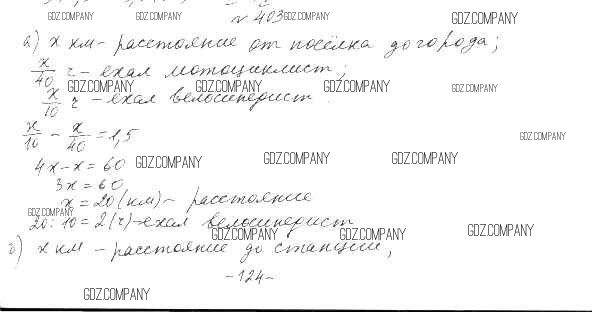 GDZ.COMPANY GDZ.COMPANY № 403 GDZ.COMPANY GDZ.COMPANY
а) х км - расстояние от посёлка до города;
х/40 ч - ехал мотоциклист;
GDZ.COMPANY GDZ.COMPANY GDZ.COMPANY GDZ.COMPANY
х/10 ч - ехал велосипедист.
х/10 - х/40 = 1,5
GDZ.COMPANY
4х - х = 60 GDZ.COMPANY GDZ.COMPANY GDZ.COMPANY
3х = 60
х = 20 (км) - расстояние
GDZ.COMPANY
20 : 10 = 2 (ч) - ехал велосипедист
GDZ.COMPANY GDZ.COMPANY GDZ.COMPANY
б) х км - расстояние до станции,
-124-
GDZ.COMPANY